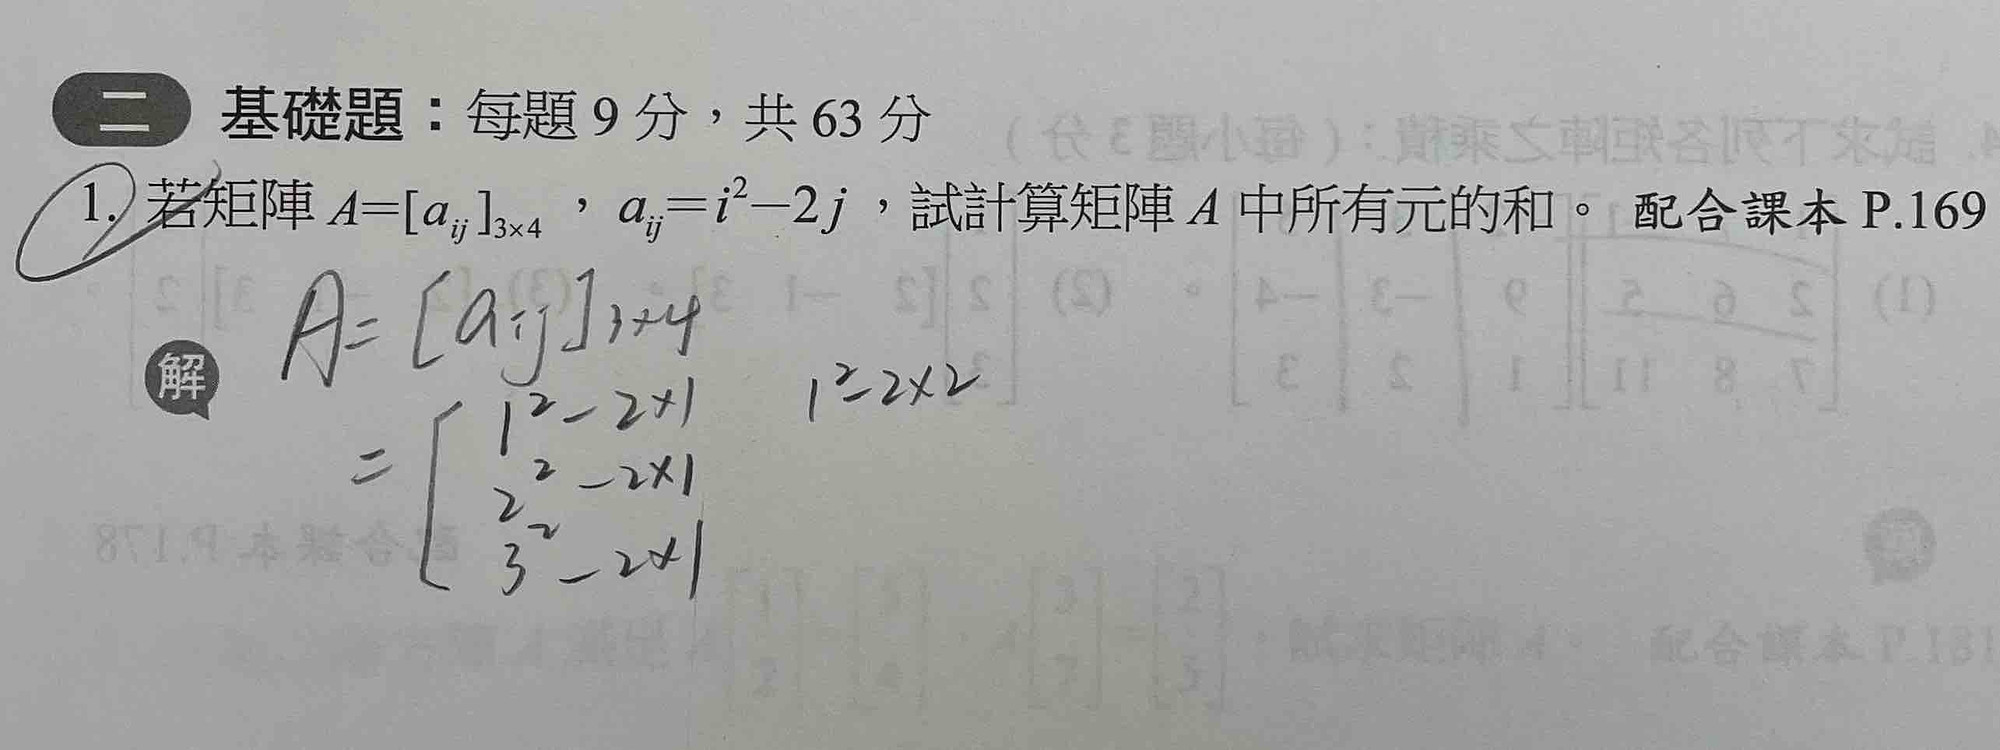 二 基礎題：每題 9 分，共 63 分
1. 若矩陣 A=[aij]3×4 ， aij=i²−2j ，試計算矩陣 A 中所有元的和。 配合課本 P.169
A = [aij]3×4
解
1²−2×1 1²−2×2
= [ 2²−2×1
3²−2×1